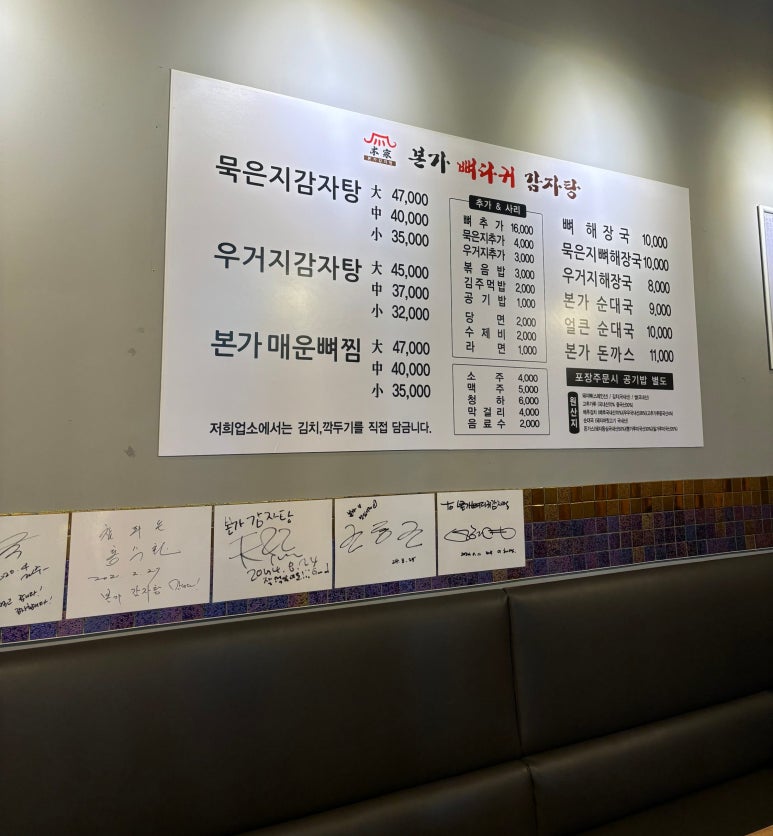 本家
본가 뼈다귀 감자탕
묵은지감자탕 大 47,000
中 40,000
小 35,000
우거지감자탕 大 45,000
中 37,000
小 32,000
본가 매운뼈찜 大 47,000
中 40,000
小 35,000
저희업소에서는 김치,깍두기를 직접 담금니다.
추가 & 사리
뼈 추 가 16,000
묵은지추가 4,000
우거지추가 3,000
볶 음 밥 3,000
김 주 먹 밥 2,000
공 기 밥 1,000
당 면 2,000
수 제 비 2,000
라 면 1,000
소 주 4,000
맥 주 5,000
청 하 6,000
막 걸 리 4,000
음 료 수 2,000
뼈 해 장 국 10,000
묵은지뼈해장국 10,000
우거지해장국 8,000
본가 순대국 9,000
얼큰 순대국 10,000
본가 돈까스 11,000
포장주문시 공기밥 별도
원산지
본가 감자탕